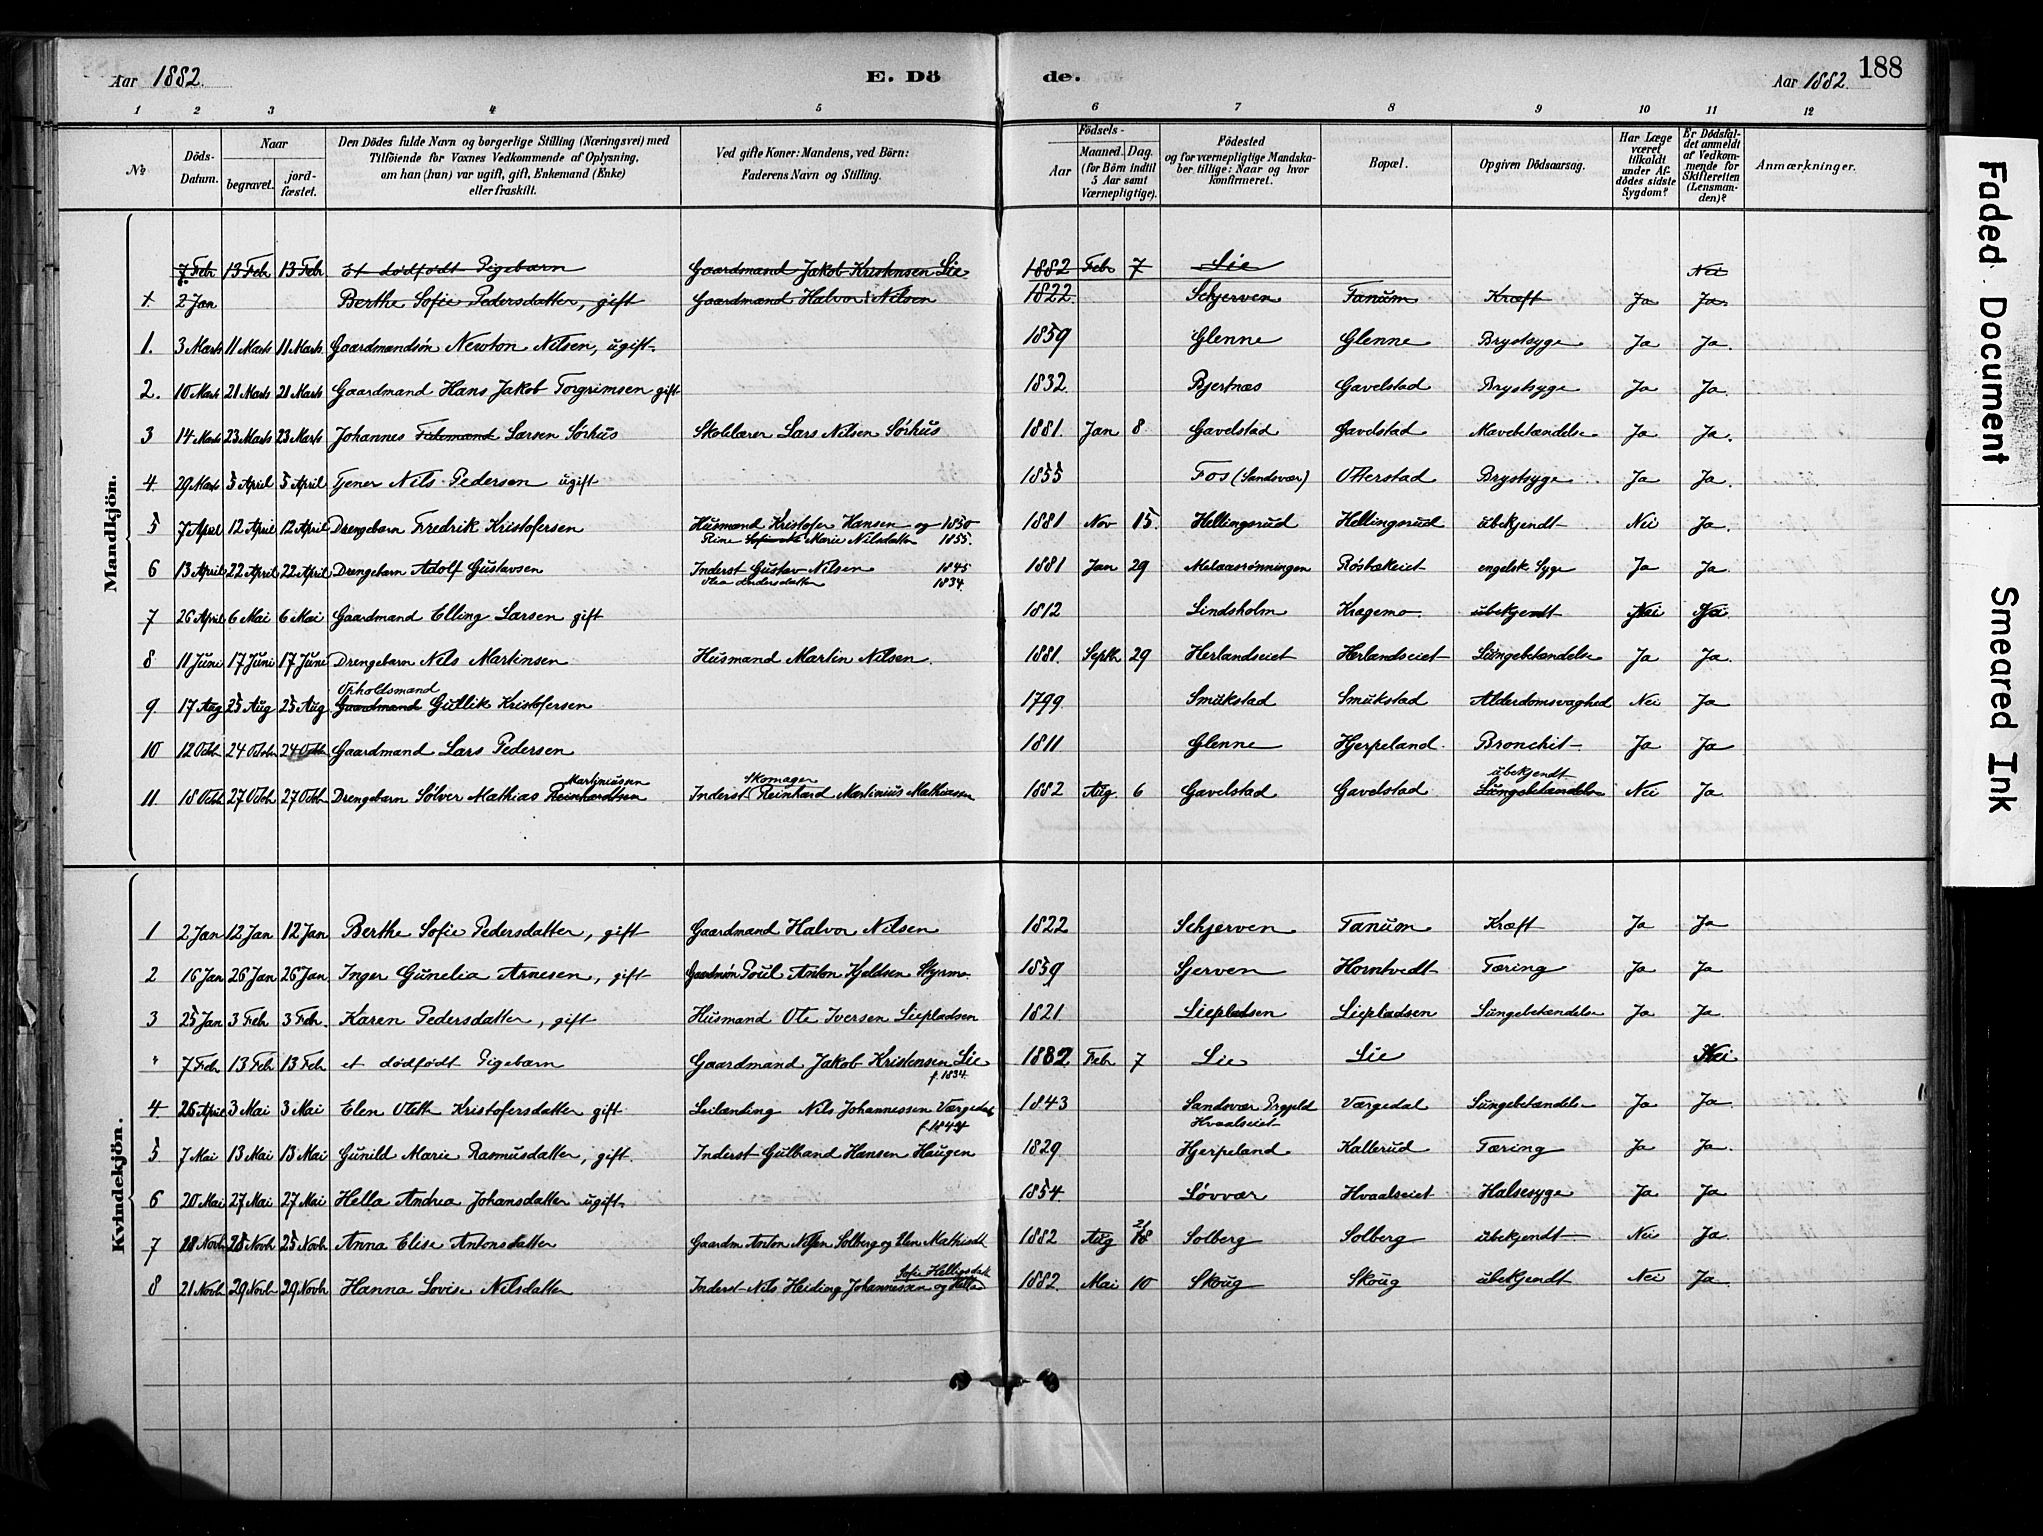 Aar 1882.
E. Dö de.
Aar 1882.
188
1 2 3 4 5 6 7 8 9 10 11 12
№
Döds-Datum.
Naar
begravet.
jord-fæstet.
Den Dödes fulde Navn og borgerlige Stilling (Næringsvei) med
Tilföiende for Voxnes Vedkommende af Oplysning,
om han (hun) var ugift, gift, Enkemand (Enke)
eller fraskilt.
Ved gifte Koner: Mandens, ved Börn:
Faderens Navn og Stilling.
Födsels-
Aar
Maaned. Dag.
(for Börn indtil
5 Aar samt
Værnepligtige).
Födested
og for værnepligtige Mandska-
ber tillige: Naar og hvor
konfirmeret.
Bopæl.
Opgiven Dödsaarsag.
Har Læge
været
tilkaldt
under Af-
dödes sidste
Sygdom?
Er Dödsfal-
det anmeldt
af Vedkom-
mende for
Skifteretten
(Lensman-
den)?
Anmærkninger.
Mandkjön.
7 Febr 13 Feb 13 Feb Et dødfødt Pigebarn Gaardmand Jakob Kristensen Lie 1882 Febr 7 Lie Nei
2 Jan Berthe Sofie Pedersdatter, gift Gaardmand Halvor Nilsen 1822. Schjerven Tanum Kræft Ja Ja
1. 3 Marts 11 Marts 11 Marts Gaardmandsøn Newton Nilsen, ugift. 1859 Glenne Glenne Brystsyge Ja Ja.
2. 10 Marts 21 Marts 21 Marts Gaardmand Hans Jakob Torgrimsen gift 1832. Bjertnæs Gavelstad Brystsyge Ja Ja.
3 14 Marts 23 Marts 23 Marts Johannes Larsen Sørhus Skolelærer Lars Nilsen Sørhus 1881. Jan 8 Gavelstad Gavelstad Mavebetændelse Ja Ja.
4. 29 Marts 5 April 5 April Tjener Nils Pedersen ugift 1855 Fos (Sandsvær) Otterstad Brystsyge Ja Ja.
5 7 April 12 April 12 April Drengebarn Fredrik Kristofersen Husmand Kristofer Hansen og 1850 1881 Nov 15. Hellingsrud Hellingsrud ubekjendt Nei Ja.
Marie Nilsdatter 1855.
6 13 April 22 April 22 April Drengebarn Adolf Gustavsen Inderst Gustav Nilsen 1845 1881 Jan 29 Melaasrønningen Røsbækeiet engelsk Syge Ja Ja
Olea Andersdatter 1834.
7 26 April 6 Mai 6 Mai Gaardmand Elling Larsen gift 1812 Lindsholm Kragemo ubekjendt Nei Nei
8 11 Juni 17 Juni 17 Juni Drengebarn Nils Martinsen Husmand Martin Nilsen. 1881. Septb 29 Herlandseiet Herlandseiet Lungebetændelse Ja Ja.
Opholdsmand
9 17 Aug 25 Aug 25 Aug Gaardmand Gullik Kristofersen 1799 Smukstad Smukstad Alderdomssvaghed Nei Ja
10 12 Octb 24 Octob 24 Octb Gaardmand Lars Pedersen 1811 Glenne Hjerpeland. Bronchit Ja Ja
Martiniussen Skomager ubekjendt
11 18 Octb 27 Octb 27 Octb Drengebarn Sølver Mathias Reinhardtsen Inderst Reinhard Martinius Mathiassen 1882 Aug. 6 Gavelstad Gavelstad Lungebetændelse Nei Ja
Kvindekjön.
1 2 Jan 12 Jan 12 Jan Berthe Sofie Pedersdatter, gift Gaardmand Halvor Nilsen 1822 Schjerven Tanum Kræft Ja Ja
2 16 Jan 26 Jan 26 Jan. Inger Gunelia Arnesen, gift Gaardmøn Poul Anton Kjeldsen Styrmo 1859 Sjerven Horntvedt Tæring Ja Ja
3 25 Jan 3 Feb 3 Feb. Karen Pedersdatter, gift Husmand Ole Iversen Liepladsen 1821 Liepladsen Liepladsen Lungebetændelse Ja Ja
" 7 Feb 13 Feb 13 Feb et dødfødt Pigebarn Gaardmand Jakob Kristensen Lie 1882 Feb 7 Lie Lie Nei
f. 1834.
4 26 April 3 Mai 3 Mai Elen Oleth Kristofersdatter gift Leilænding Nils Johannessen Værgedal 1843 Sandsvær Prgjeld Værgedal Lungebetændelse Ja Ja
Hvaalseiet
5 7 Mai 13 Mai 13 Mai Gunild Marie Rasmusdatter, gift. Inderst Gulbrand Hansen Haugen 1829 Hjerpeland Kallerud Tæring Ja Ja.
6 20 Mai 27 Mai 27 Mai Hella Andrea Johansdatter ugift. 1854 Løvvær Hvaalseiet Halsesyge Ja Ja
7 18 Novb 25 Novb 25 Novb Anna Elise Antonsdatter Gaardm. Anton Nilsen Solberg og Elen Mathisdt 1882 Aug 21/18 Solberg Solberg ubekjendt Nei Ja
Sofie Helligsdatt
8 21 Novb 29 Novb 29 Novb Hanna Lovise Nilsdatter Inderst Nils Heiding Johannessen og Hella 1882. Mai 10 Skoug Skoug ubekjendt Nei Ja
Faded Document
Smeared Ink